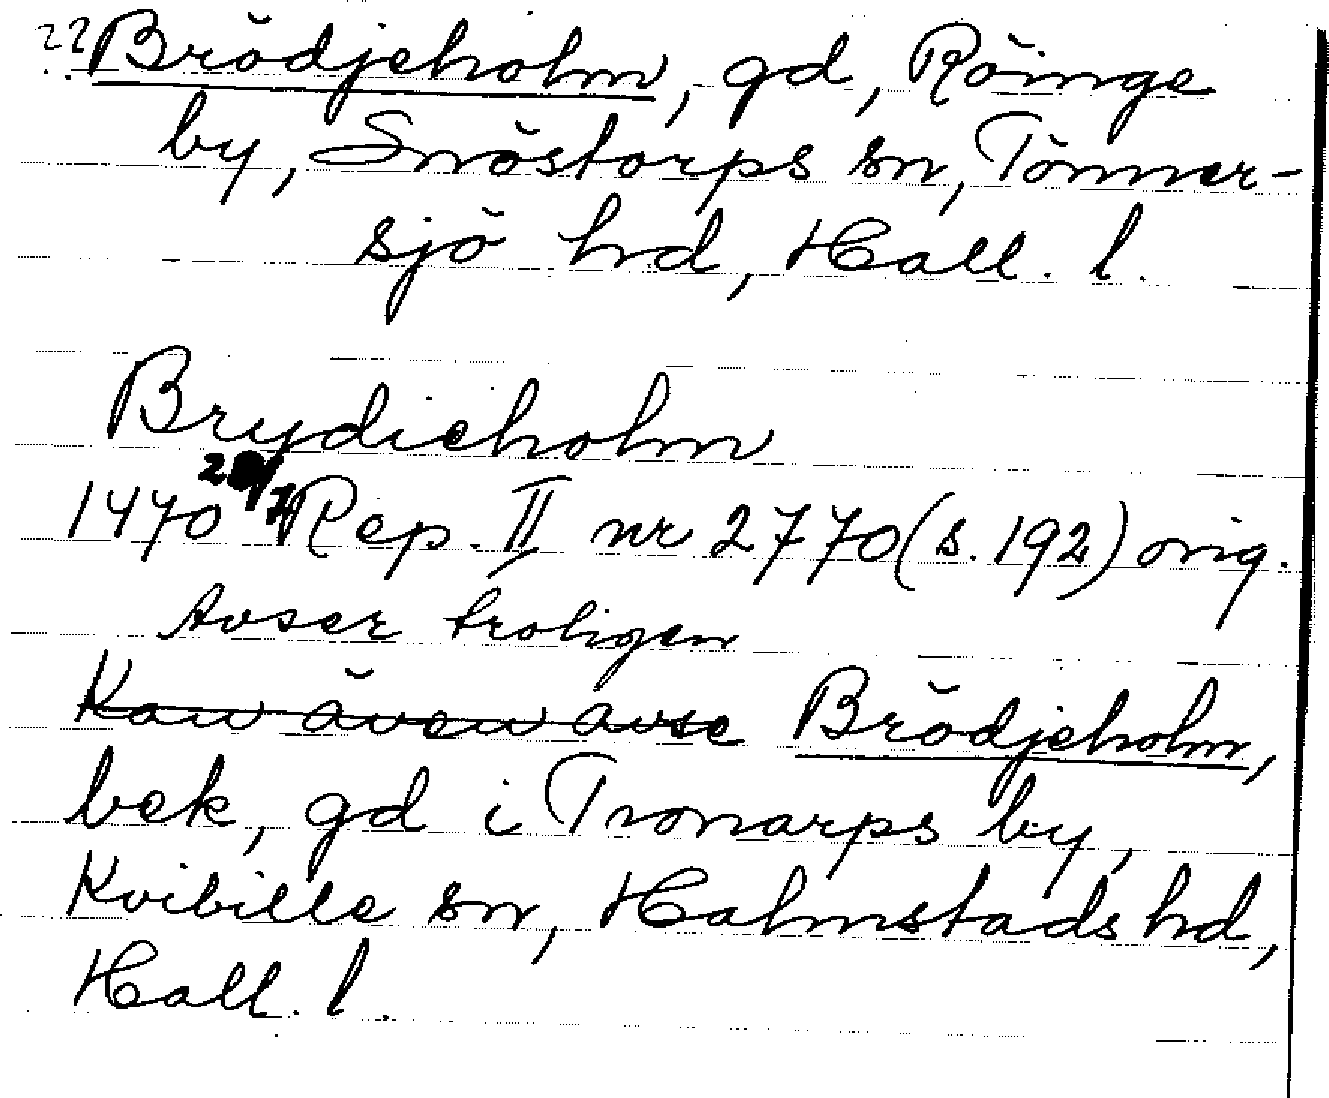 ?? Brödjeholm, gd, Röinge
by, Snöstorps sn, Tönner-
sjö hd, Hall. l.
Brydieholm
1470 28/7 Rep. II nr 2770 (s. 192) orig.
Avser troligen
Kan även avse Brödjeholm,
bek, gd i Tronarps by,
Kvibille sn, Halmstads hd,
Hall. l.